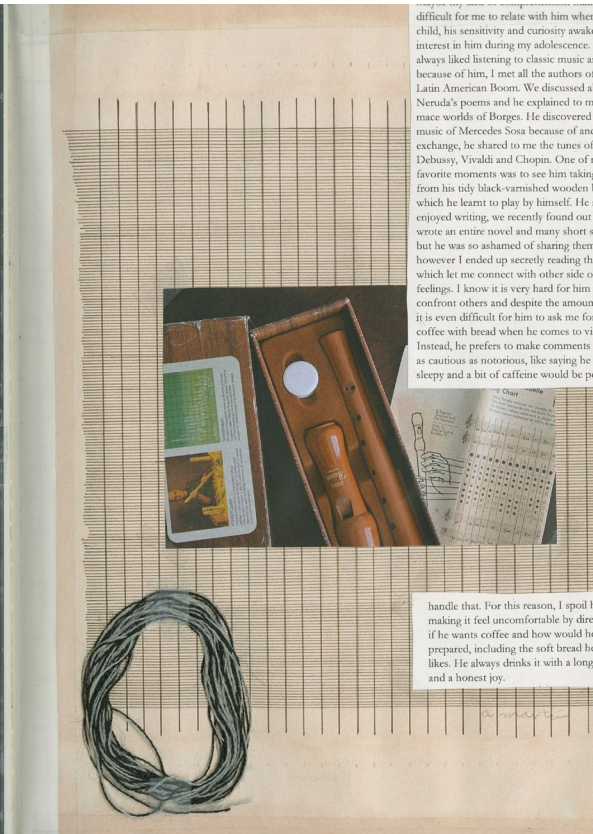 difficult for me to relate with him when
child, his sensitivity and curiosity awak
interest in him during my adolescence.
always liked listening to classic music a
because of him, I met all the authors o
Latin American Boom. We discussed a
Neruda's poems and he explained to m
mace worlds of Borges. He discovered
music of Mercedes Sosa because of an
exchange, he shared to me the tunes of
Debussy, Vivaldi and Chopin. One of
favorite moments was to see him taking
from his tidy black-varnished wooden
which he learnt to play by himself. He
enjoyed writing, we recently found out
wrote an entire novel and many short s
but he was so ashamed of sharing them
however I ended up secretly reading th
which let me connect with other side o
feelings. I know it is very hard for him
confront others and despite the amoun
it is even difficult for him to ask me for
coffee with bread when he comes to vi
Instead, he prefers to make comments
as cautious as notorious, like saying he
sleepy and a bit of caffeine would be p
Chart
handle that. For this reason, I spoil h
making it feel uncomfortable by dire
if he wants coffee and how would he
prepared, including the soft bread he
likes. He always drinks it with a long
and a honest joy.